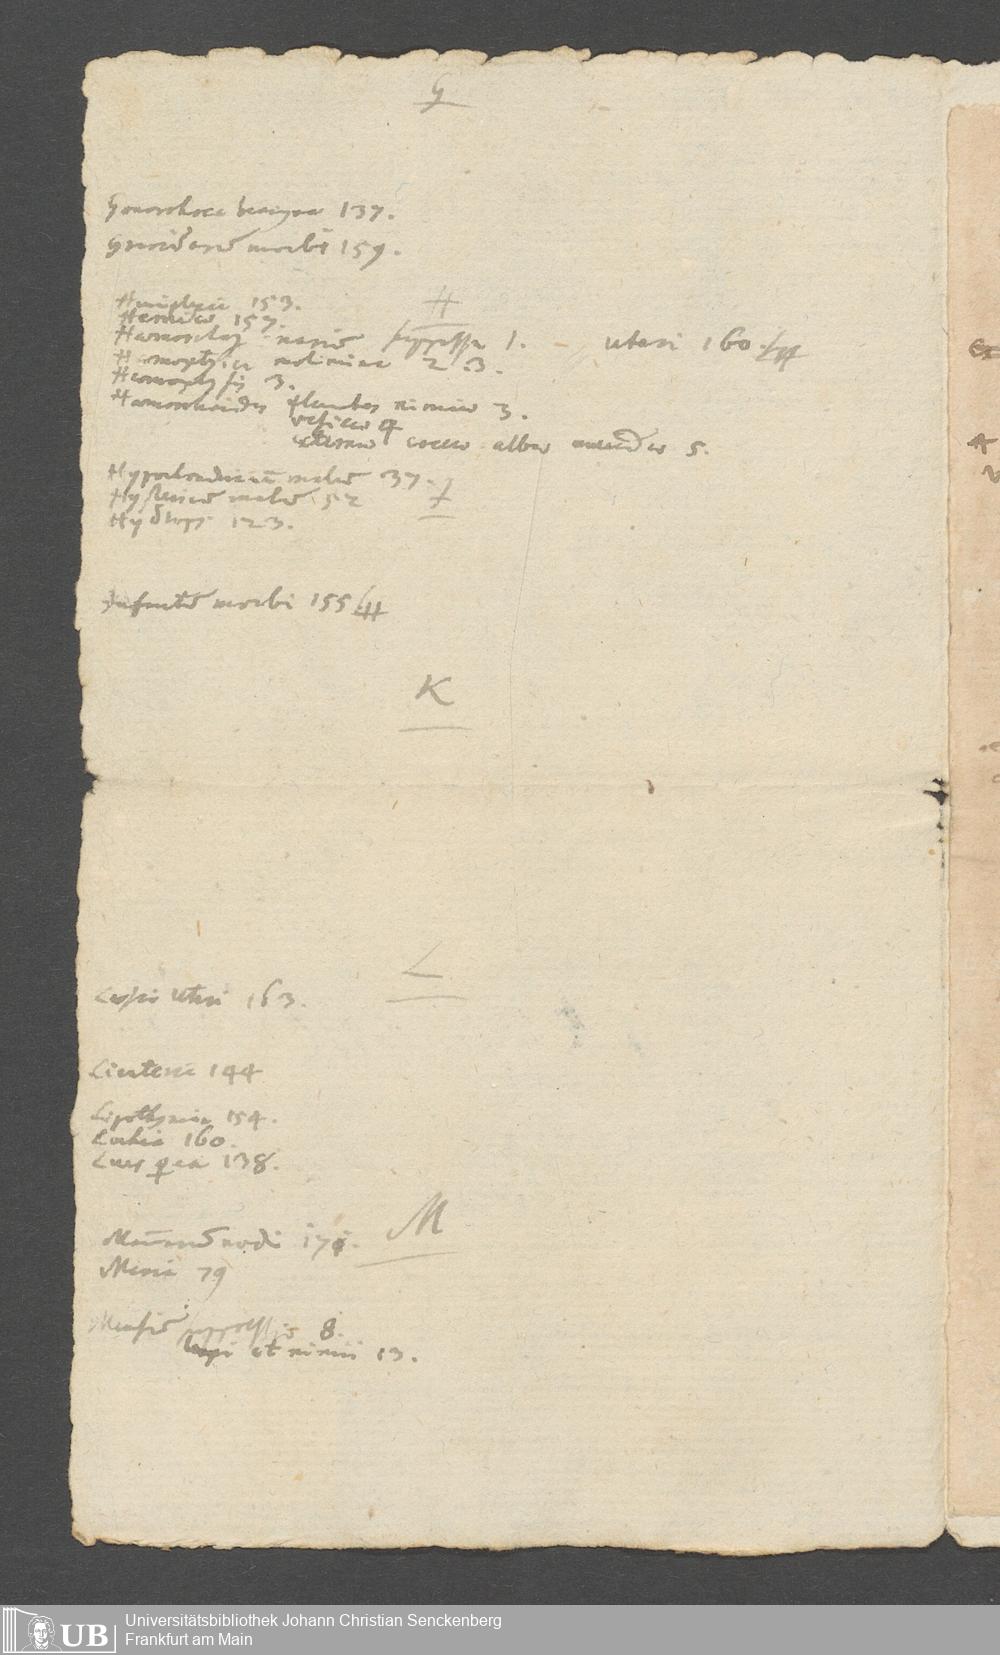 G
Gonorrhoea benigna 137.
Gravidarū morbi 159.
H
Hemiplegia 153.
Hernia 157.
Haemorrhag narium suppressa 1. - uteri 160.
Haemoptysica molimina 2.3.
Haemoptysis 3.
Haemorrhoides fluentes nimiae 3.
vesicae 4
caecae albae 5.
Hypochondriacū malū 37.
Hystericū malū 52
I
Hydrops 123.
Infantū morbi 155
K
L
Lapsus uteri 163.
Lienteria 144
Lipothymia 154.
Lochia 160.
Lues 138.
M
Mammarū nodi
Mania 79
Mensiū suppressio 8.
et nimii 13.
Universitätsbibliothek Johann Christian Senckenberg
Frankfurt am Main
UB